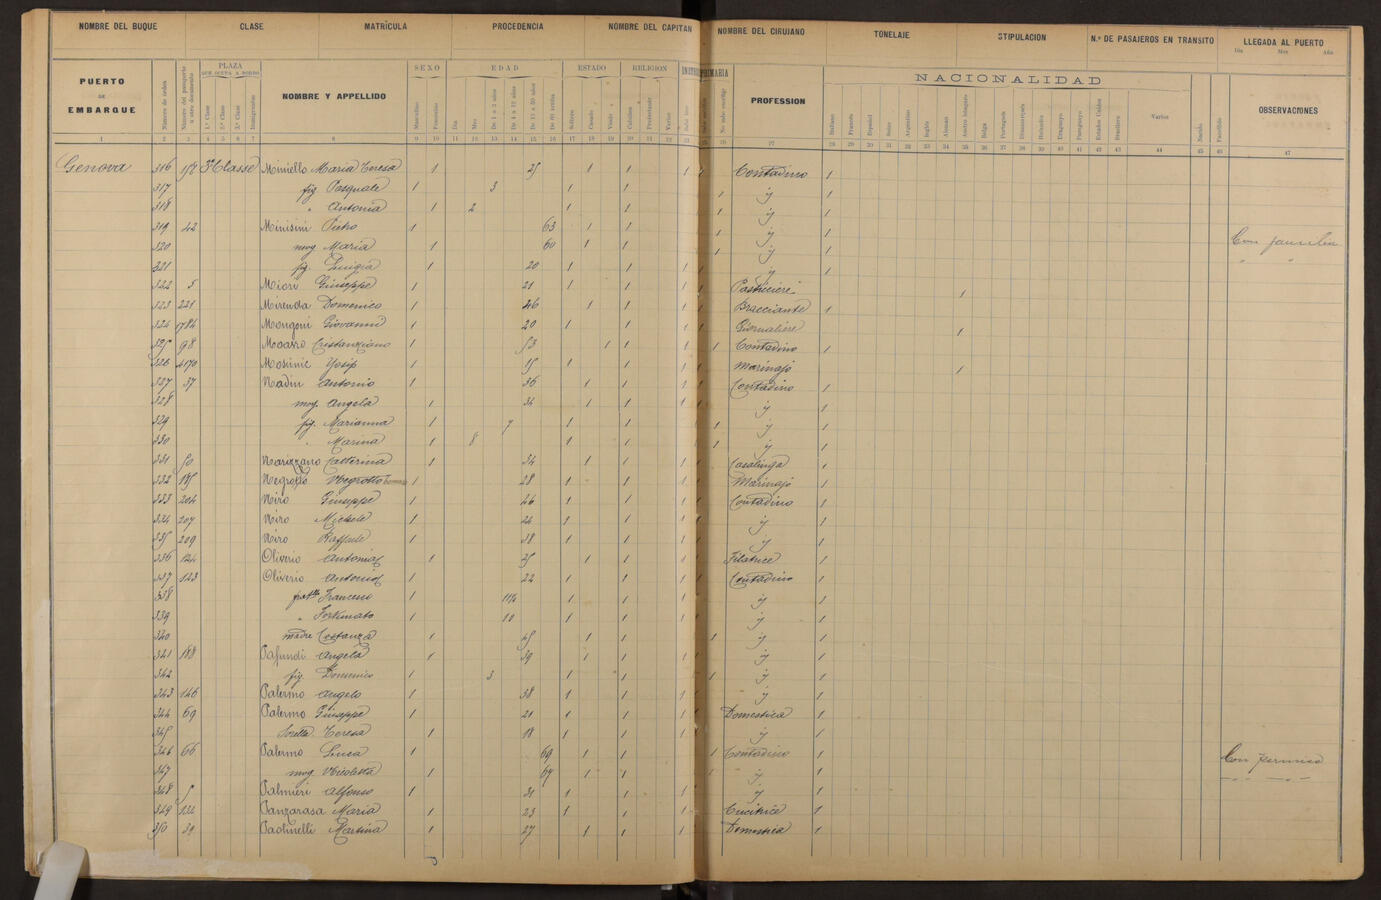 NOMBRE DEL BUQUE CLASE MATRÍCULA PROCEDENCIA NOMBRE DEL CAPITAN NOMBRE DEL CIRUJANO TONELAJE STIPULACION N.º DE PASAJEROS EN TRANSITO LLEGADA AL PUERTO
Día Mes Año
PUERTO DE EMBARQUE Número de orden Número del pasaporte u otro documento PLAZA QUE OCUPA A BORDO 1.ª Clase 2.ª Clase 3.ª Clase Inmigrantes NOMBRE Y APPELLIDO SEXO Masculino Femenino EDAD Día Mes De 1 a 3 años De 4 a 12 años De 13 a 59 años De 60 arriba ESTADO Soltero Casado Viudo RELIGION Católica Protestante Varios PRIMARIA PROFESSION NACIONALIDAD Italiano Francés Español Suizo Argentino Inglés Alemán Austro húngaro Belga Portugués Dinamarqués Holandés Uruguayo Paraguayo Estados Unidos Brasilero Varios Nacido Fallecido OBSERVACIONES
1 2 3 4 5 6 7 8 9 10 11 12 13 14 15 16 17 18 19 20 21 22 23 25 26 27 28 29 30 31 32 33 34 35 36 37 38 39 40 41 42 43 44 45 46 47
Genova 316 172 3ª Classe Miniello Maria Teresa 1 25 1 1 1 1 Contadino 1
317 fig. Pasquale 1 3 1 1 1 y 1
318 " Antonia 1 2 1 1 1 y 1
319 42 Minisini Pietro 1 63 1 1 1 y 1 Con familia
320 mog Maria 1 60 1 1 1 y 1 " "
321 fig. Luigia 1 20 1 1 1 1 y 1
322 5 Miori Giuseppe 1 21 1 1 1 1 Pasticiere 1
323 221 Mirenda Domenico 1 46 1 1 1 1 Bracciante 1
324 1784 Mongoni Giovanni 1 20 1 1 1 1 Giornaliere 1
325 98 Cristanziano 1 53 1 1 1 1 Contadino 1
326 4170 Mosinic Yosip 1 15 1 1 1 1 Marinajo 1
327 37 Nadin Antonio 1 36 1 1 1 1 Contadino 1
328 mog. Angela 1 34 1 1 1 1 y 1
329 fig. Marianna 1 7 1 1 1 y 1
330 " Marina 1 8 1 1 1 y 1
331 50 Narizzano Catterina 1 34 1 1 1 1 Casalinga 1
332 185 Negrotto Negrotto 1 28 1 1 1 1 Marinajo 1
333 204 Niro Giuseppe 1 46 1 1 1 1 Contadino 1
334 207 Niro Michele 1 24 1 1 1 1 y 1
335 209 Niro Raffaele 1 38 1 1 1 1 y 1
336 124 Oliverio Antonia 1 25 1 1 1 1 Filatrice 1
337 123 Oliverio Antonio 1 22 1 1 1 1 Contadino 1
338 frat.llo Francesco 1 11½ 1 1 1 1 y 1
339 " Fortunato 1 10 1 1 1 1 y 1
340 madre Costanza 1 45 1 1 1 y 1
341 188 Pafundi Angela 1 39 1 1 1 1 y 1
342 fig. Domenico 1 3 1 1 1 y 1
343 146 Palermo Angelo 1 38 1 1 1 1 y 1
344 69 Palermo Giuseppe 1 21 1 1 1 1 Domestica 1
345 Sorella Teresa 1 18 1 1 1 1 y 1
346 66 Palermo Luca 1 69 1 1 1 Contadino 1
347 mog. Nicoletta 1 67 1 1 1 y 1
348 5 Palmieri Alfonso 1 31 1 1 1 1 y 1
349 122 Panzarasa Maria 1 23 1 1 1 1 Cucitrice 1
350 39 Paolinelli Martina 1 27 1 1 1 1 Domestica 1